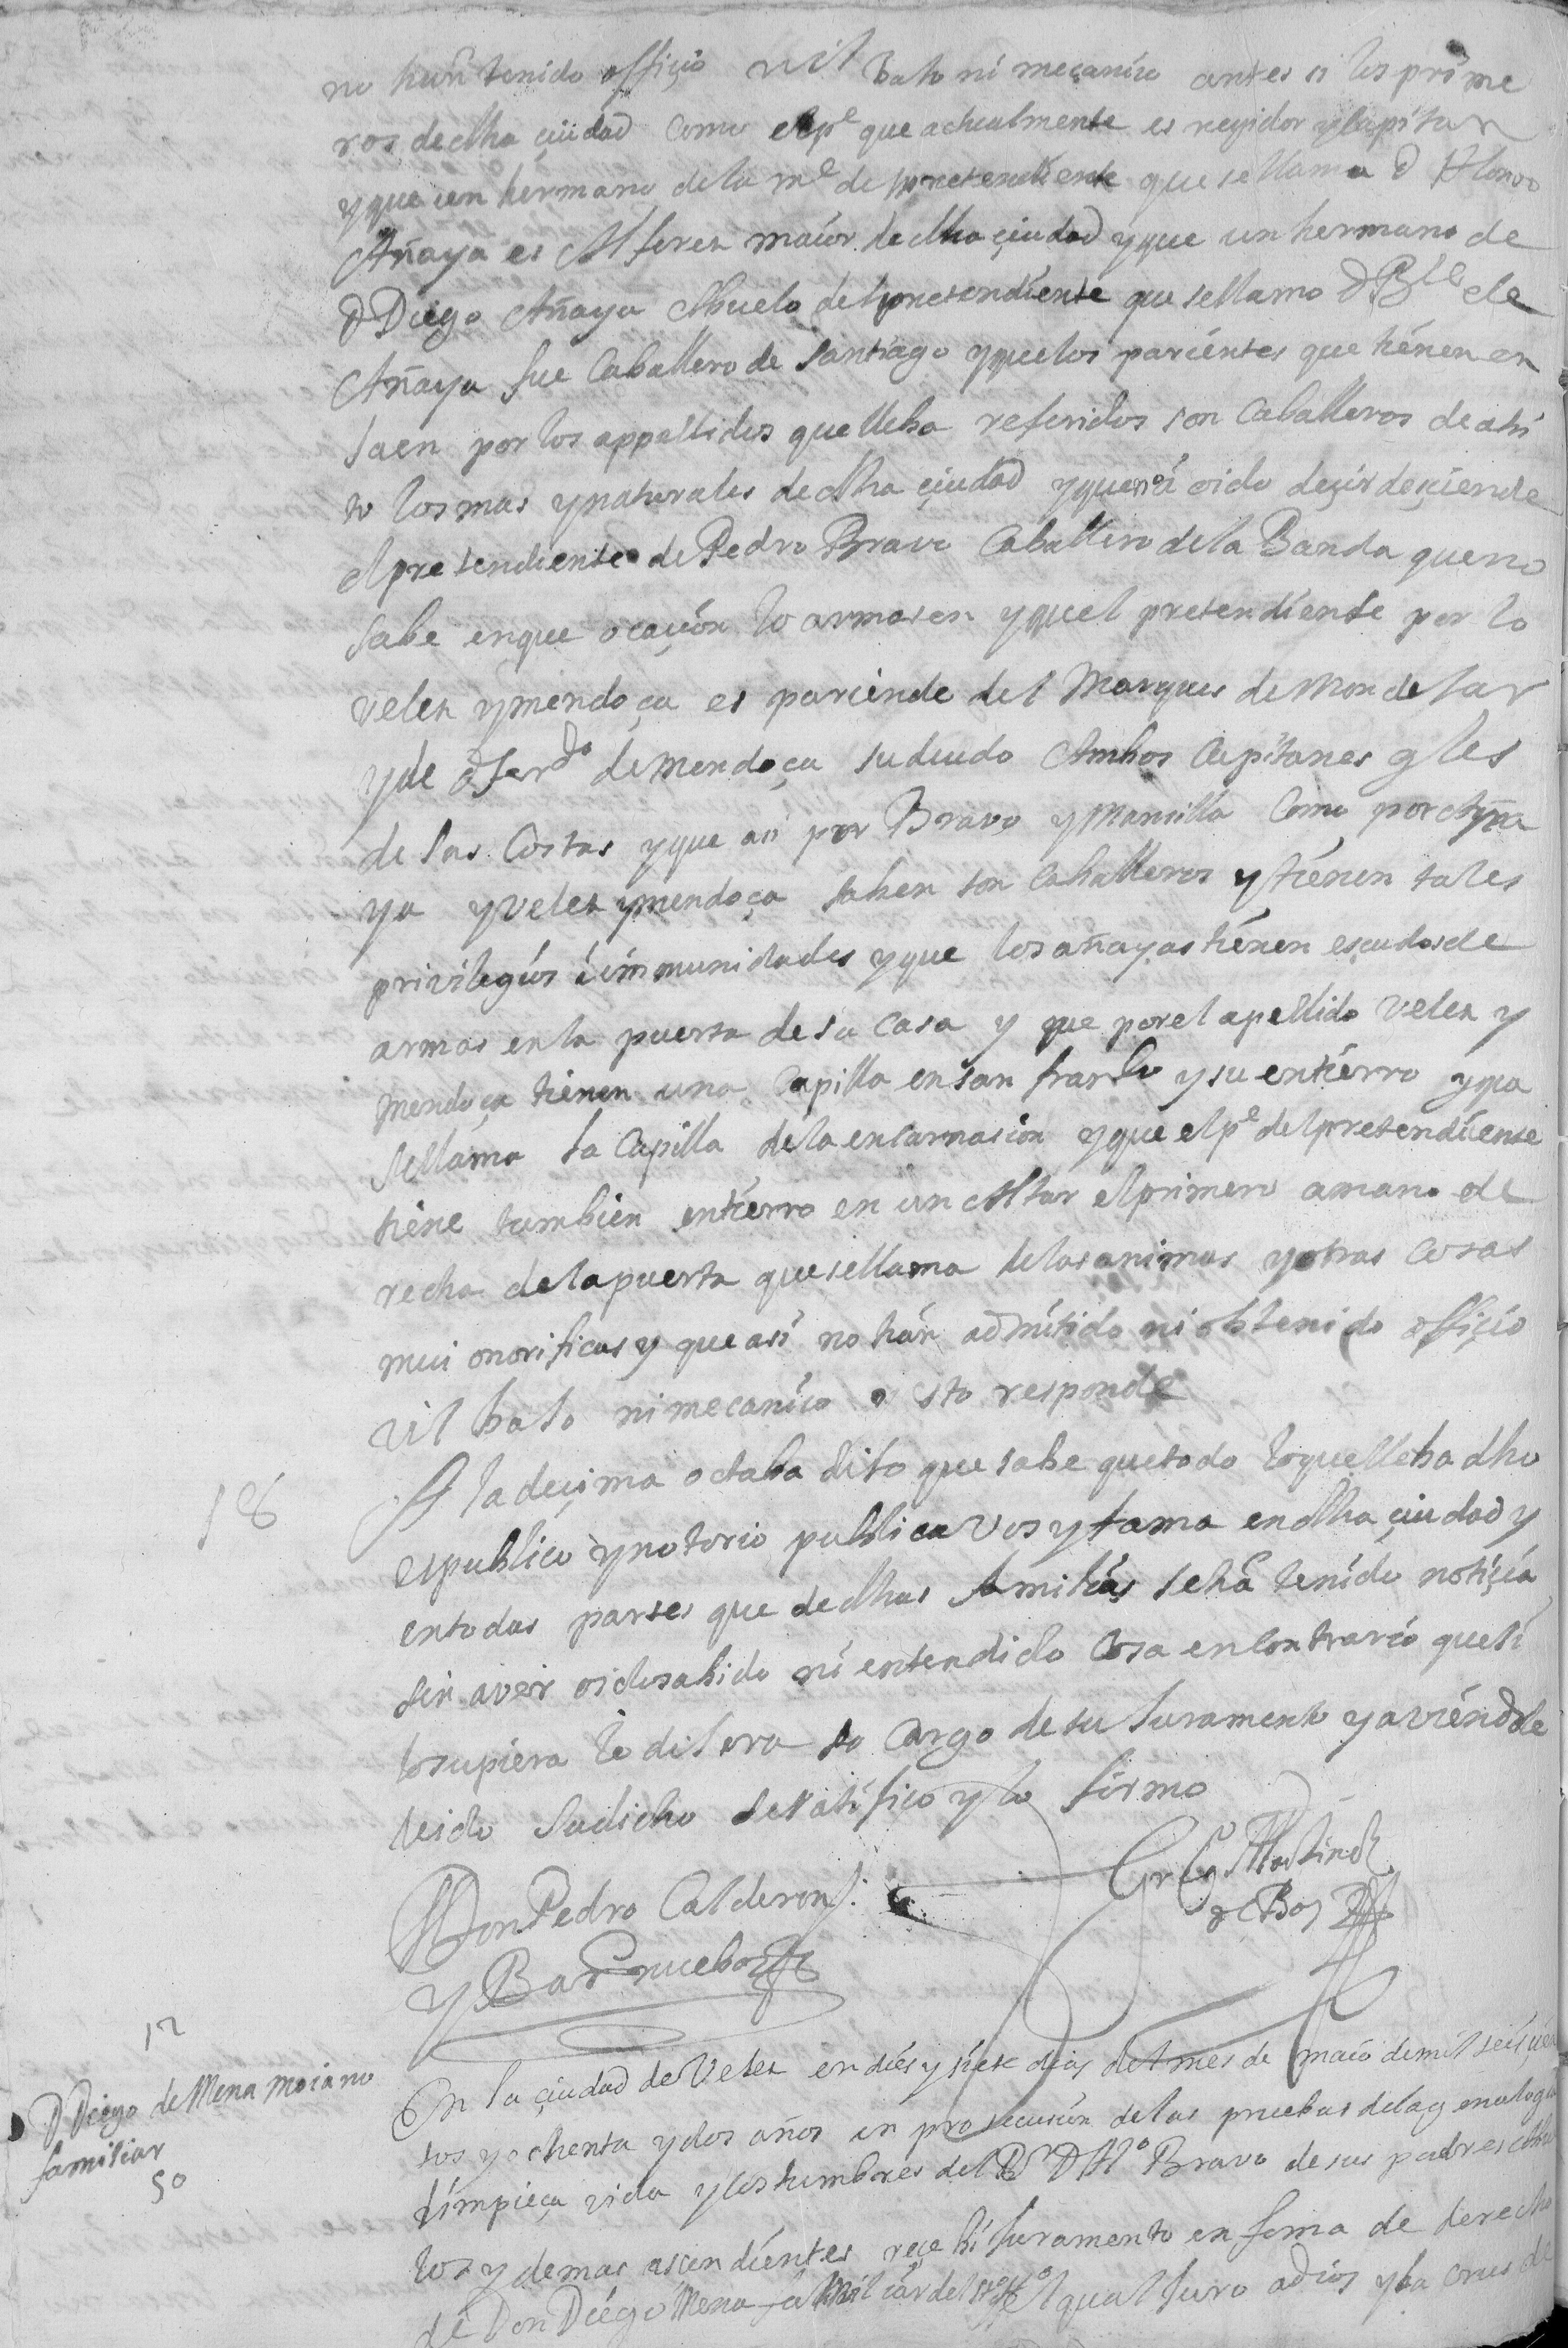 no han tenido offiçio vil bajo ni meçanico antes si los prime
ros de dha çiudad como el pe que actualmente es regidor y capitan
y que un hermano de la me del pretendiente que se llama D Alonso
Añaya es Alferez maior de dha çiudad y que un hermano de
D Diego Añaya Abuelo del pretendiente que se llamo D Ble de
Añaya fue Caballero de Santiago y que los parientes que tienen en
Jaen por los appellidos que lleba referidos son Caballeros de abi
to los mas y naturales de dha çiudad y que há oido deçir desçiende
el pretendiente de Pedro Bravo Caballero de la Banda que no
sabe en que ocaçion lo armasen y que el pretendiente por lo
velez y mendoça es pariente del Marques de Mondejar
y de D ferdo de Mendoça su deudo Ambos Capitanes gles
de las Costas y que asi por Bravo y Mansilla como por Aña
ya y velez y mendoça saben son Caballeros y tienen tales
privilegios è immunidades y que los añayas tienen escudos de
armas en la puerta de su casa y que por el apellido velez y
mendoça tienen una Capilla en san franco y su entierro y que
se llama la Capilla de la encarnacion y que el pe del pretendiente
tiene tambien entierro en un Altar el primero a mano de
recha de la puerta que se llama de las animas y otras cosas
mui onorificas y que asi no hán admitido ni obtenido offiçio
vil bajo ni mecanico esto responde
18 A la deçima octaba dijo que sabe que todo lo que lleba dho
es publico y notorio publica vos y fama en dha çiudad y
en todas partes que de dhas familias se há tenido notiçia
sin aver oido sabido ni entendido cosa en contrario que si
lo supiera lo dijera so cargo de su Juramento y aviéndole
leido su dicho se ratifico y lo firmo
Don Pedro Calderon
y Barnuebo
Grego Martinez
de Bos
12
D Diego de Mena moiano
familiar
50
En la çiudad de Velez en dies y siete dias del mes de maio de mil seisçien
tos y ochenta y dos años en prosecusion de las pruebas de la genalogia
limpieça vida y costumbres del Br D Alo Bravo de sus padres Abue
los y demas asendientes reçebi Juramento en forma de derecho
de Don Diego Mena familiar del sto offo el qual Juro a Dios y la crus de